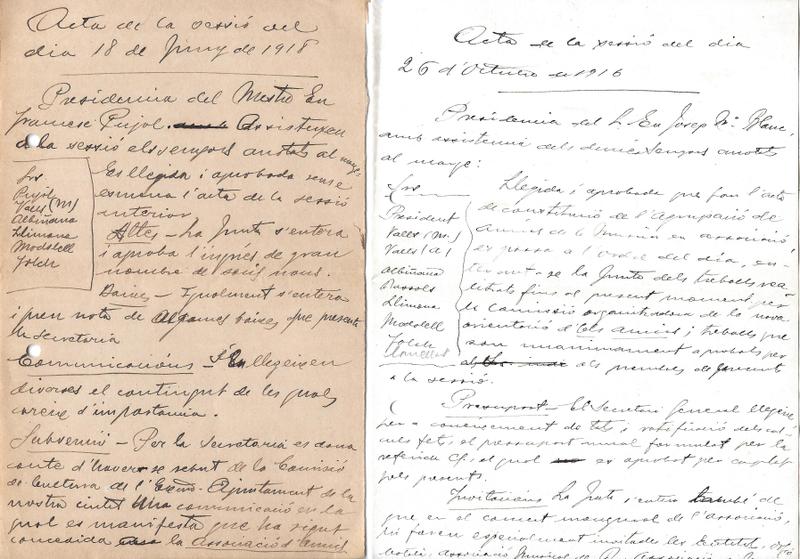 Acta de la sessió del
dia 18 de Juny de 1918
Presidencia del Mestre En
Francesc Pujol. Assisteixen
a la sessió els senyors anotats al marge,
Srs.
Pujol
Valls (M)
Albiñana
Llimona
Modolell
Folch
Es llegida i aprobada sense
esmena l'acta de la sessió
anterior
Altes - La Junta s'entera
i aproba l'ingrés de gran
nombre de socis nous.
Baixes - Igualment s'entera
i pren nota de algunes baixes que presenta
la Secretaria
Comunicacións - S'en llegeixen
diverses el contingut de les quals
careix d'importancia.
Subvenció - Per la Secretaria es dona
conte d'haver-se rebut de la Comissió
de de l'Excm. Ajuntament de la
nostra ciutat una comunicació en la
qual es manifesta que ha sigut
concedida a la Associació d'Amics
Acta de la sessió del dia
26 d'Octubre de 1916
Presidencia del Sr. En Josep Mª Blanc,
amb assistencia dels demés senyors anotats
al marge:
Srs.
President
Valls (M)
Valls (A)
Albiñana
Bassols
Llimona
Modolell
Folch
Llegida i aprobada que fou l'acta
de constitució de l'Agrupació de
Amics de la Musica en associació,
es passa a l'ordre del dia, en-
terant-se la Junta dels treballs rea-
litzats fins al present moment per
la Comissió organitzadora de la nova
orientació d'els amics i treballs que
son unanimament aprobats per
els membres presents
a la sessió.
Pressupost - El Secretari General llegeix
per a coneixement de tots i ratificació dels cal-
culs fets, el pressupost anual formulat per la
referida Cª. el qual es aprobat per complet
pels presents.
Invitacións La Junta s'entera també de
que en el concert inaugural de l'Associació,
hi foren especialment invitades les Entitats,